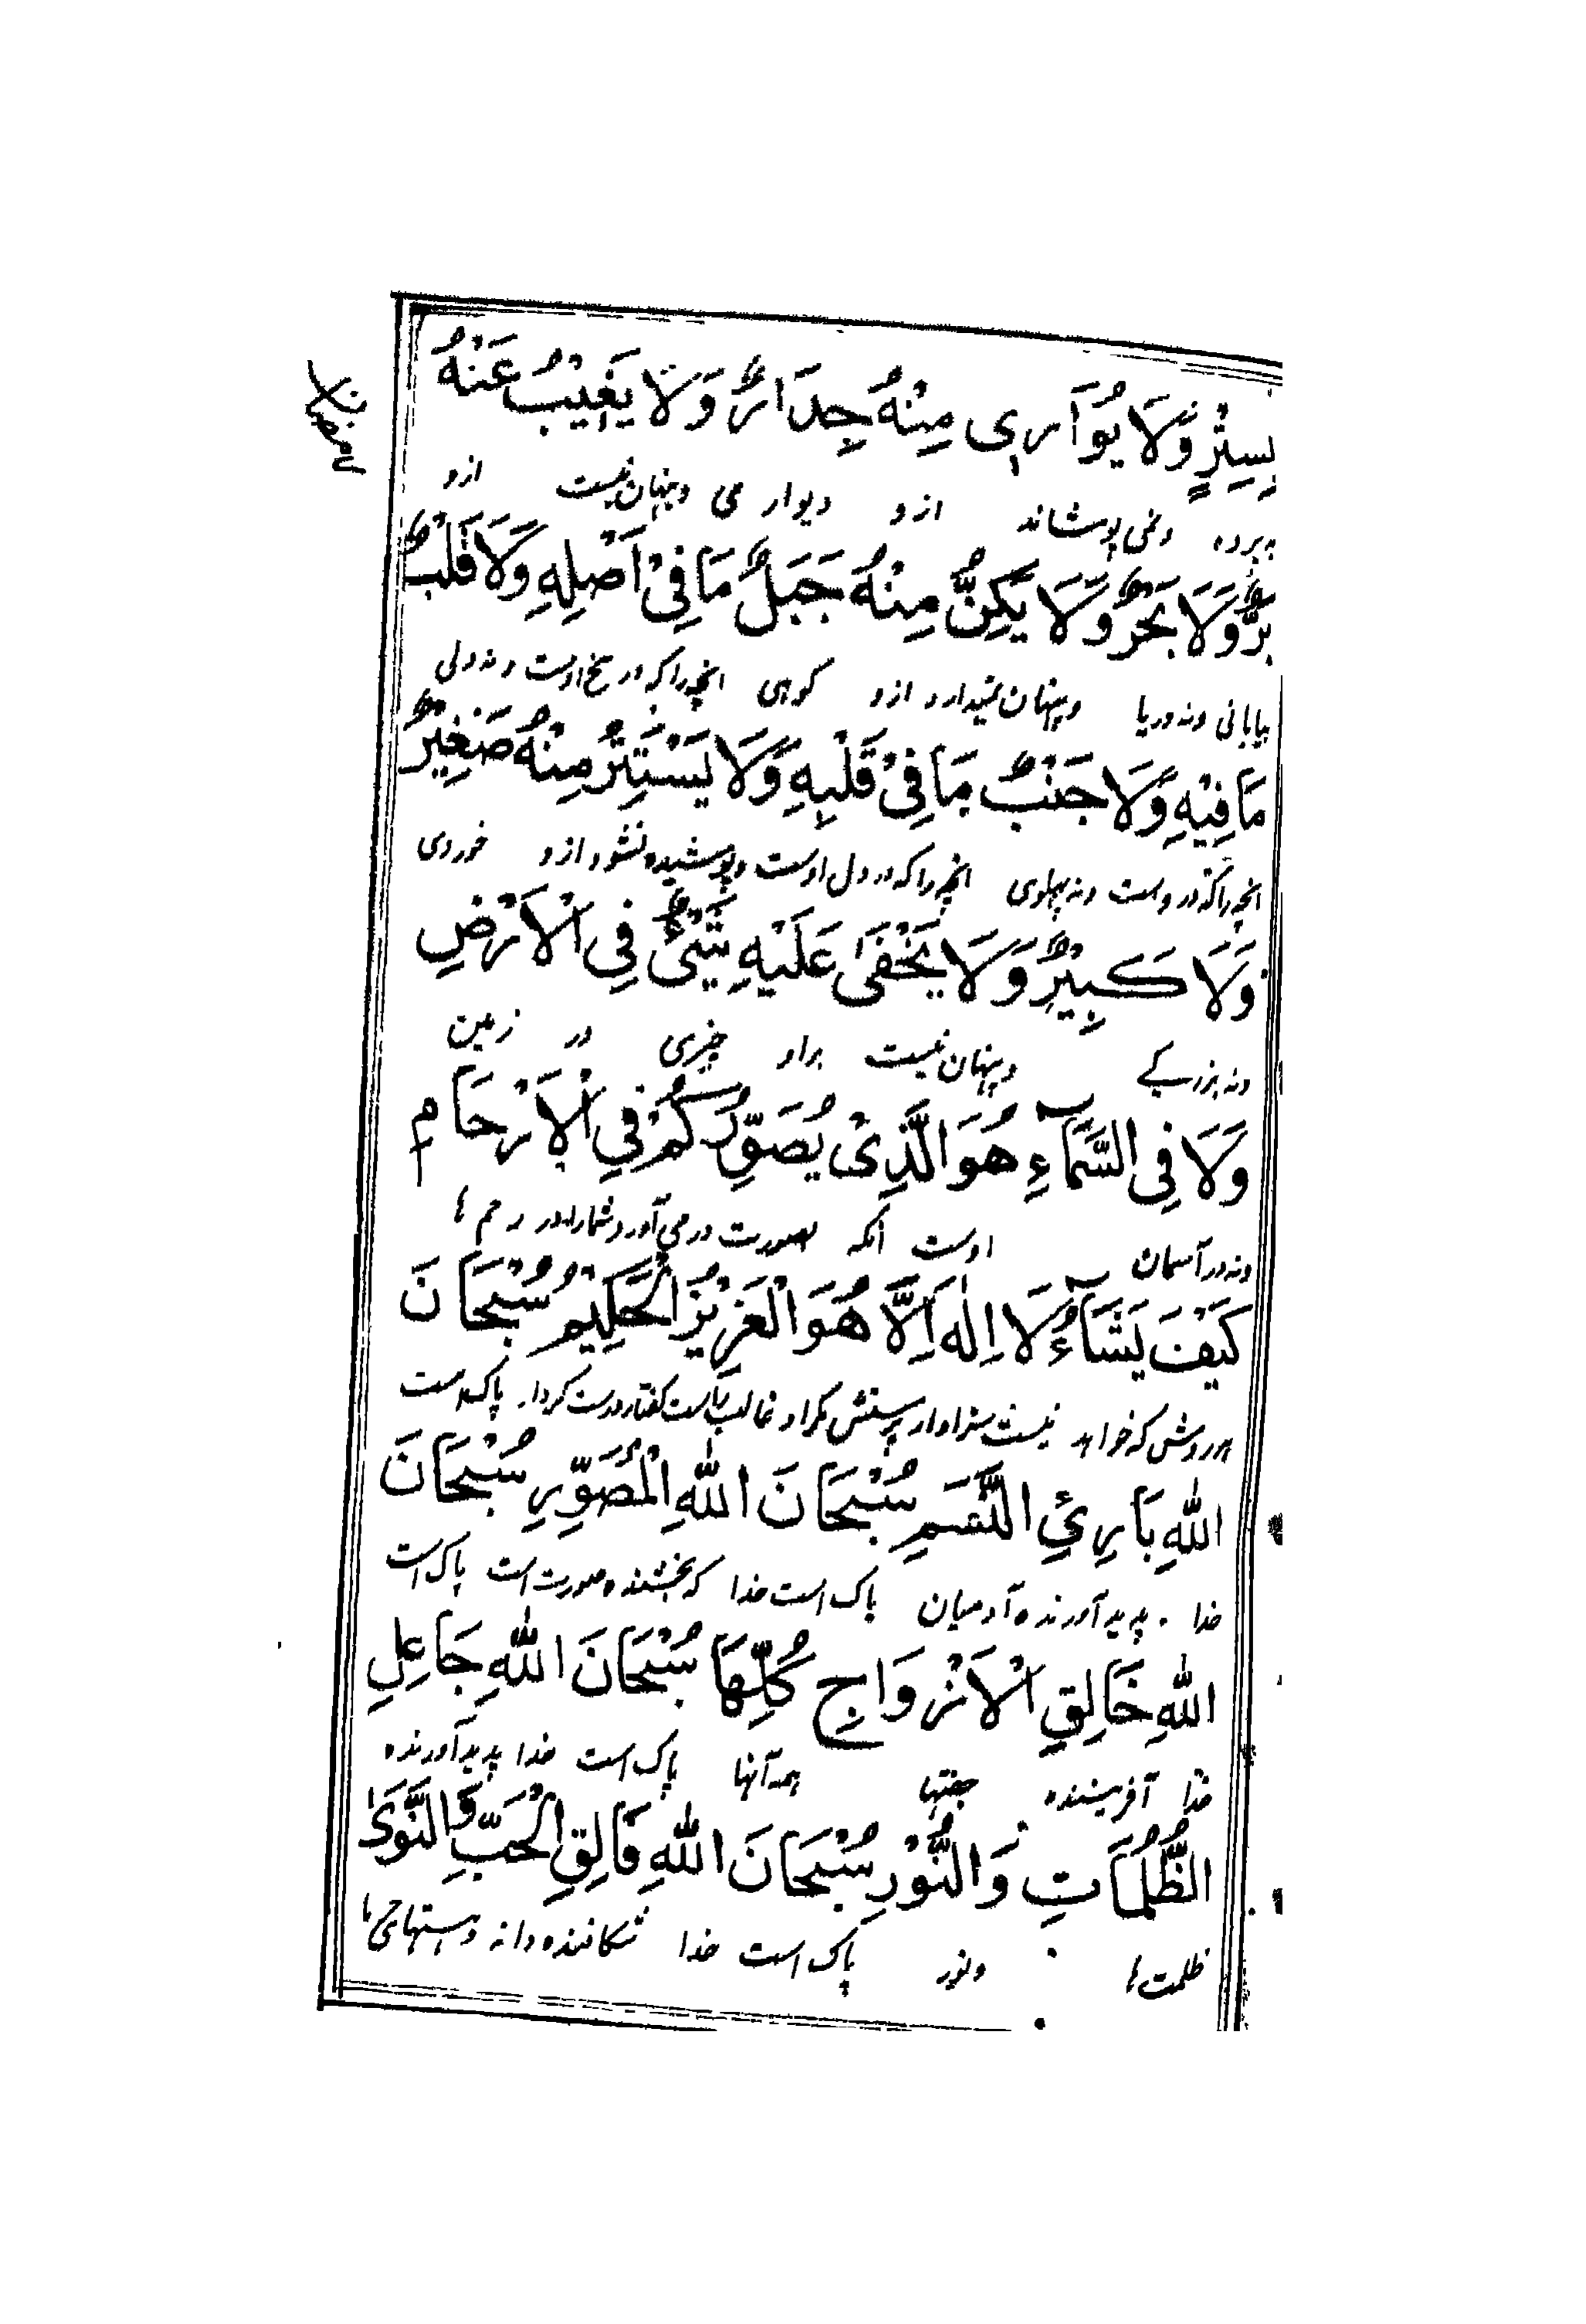 بِسِتْرٍ وَّلَا يُوَارِی مِنْهُ جِدَارٌ وَلَا يَغِيْبُ عَنْهُ
بپرده ونمی پوشاند ازو دیوار می وپنهان نیست ازو
بَرٌّ وَّلَا بَحْرٌ وَّلَا يَكِنُّ مِنْهُ جَبَلٌ مَا فِیْ اَصْلِهٖ وَلَا قَلْبٌ
بیابانی ونه دریا وپنهان نمیدارد ازو کوهی انچه راکه در بیخ اوست ونه دلی
مَا فِيْهِ وَّلَا جَنْبٌ مَا فِیْ قَلْبِهٖ وَّلَا يَسْتَتِرُ مِنْهُ صَغِيْرٌ
انچه راکه در وست ونه پهلوی انچه راکه در دل اوست وپوشیده نشود ازو خوردی
وَلَا كَبِيْرٌ وَلَا يَخْفٰی عَلَيْهِ شَیْءٌ فِی الْاَرْضِ
ونه بزرگے وپنهان نیست براو چیزی در زمین
وَلَا فِی السَّمَآءِ هُوَ الَّذِیْ يُصَوِّرُكُمْ فِی الْاَرْحَامِ
ونه در آسمان اوست آنکه بصورت در می آورد شمارا در رحم ها
كَيْفَ يَشَآءُ لَا اِلٰهَ اِلَّا هُوَ الْعَزِيْزُ الْحَكِيْمُ سُبْحَانَ
هر روش که خواهد نیست سزاوار پرستش مگر او غالب راست گفتار درست کردار پاک است
اللّٰهِ بَارِئِ النَّسَمِ سُبْحَانَ اللّٰهِ الْمُصَوِّرِ سُبْحَانَ
خدا پدید آورنده آدمیان پاک است خدا که بخشنده صورت است پاک است
اللّٰهِ خَالِقِ الْاَزْوَاجِ كُلِّهَا سُبْحَانَ اللّٰهِ جَاعِلِ
خدا آفریننده جفتها همه آنها پاک است خدا پدید آورنده
الظُّلُمَاتِ وَالنُّوْرِ سُبْحَانَ اللّٰهِ فَالِقِ الْحَبِّ وَالنَّوٰی
ظلمت ها ونور پاک است خدا شکافنده دانه